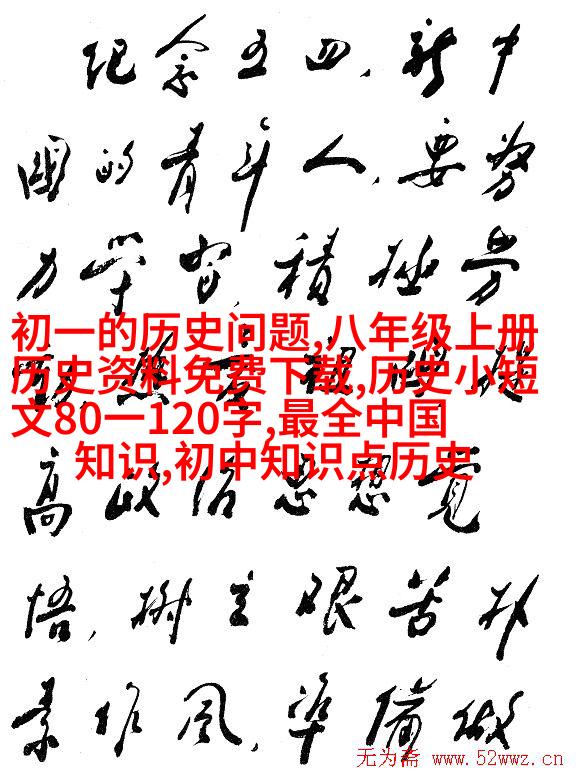 纪念五四，新中
國的青年人，要努
力学習，積極劳
初一的历史问题,八年级上册
历史资料免费下载,历史小短
文80一120字,最全中国
知识,初中知识点历史
高政治思想覚
悟，树立艰苦朴
素作风，準備做
无为斋 www.52wwz.cn